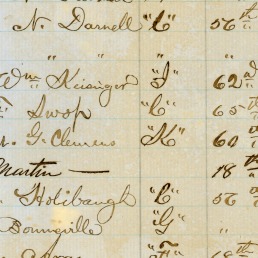 N. Darnell "C" 56th
" " "
Wm Keisinger "I" 62nd
Swop "C" 65th
G. Clemens "K" 60th
Martin — 18th
Holibaugh "C" 56th
Bonneville "G" "
"F" 18th